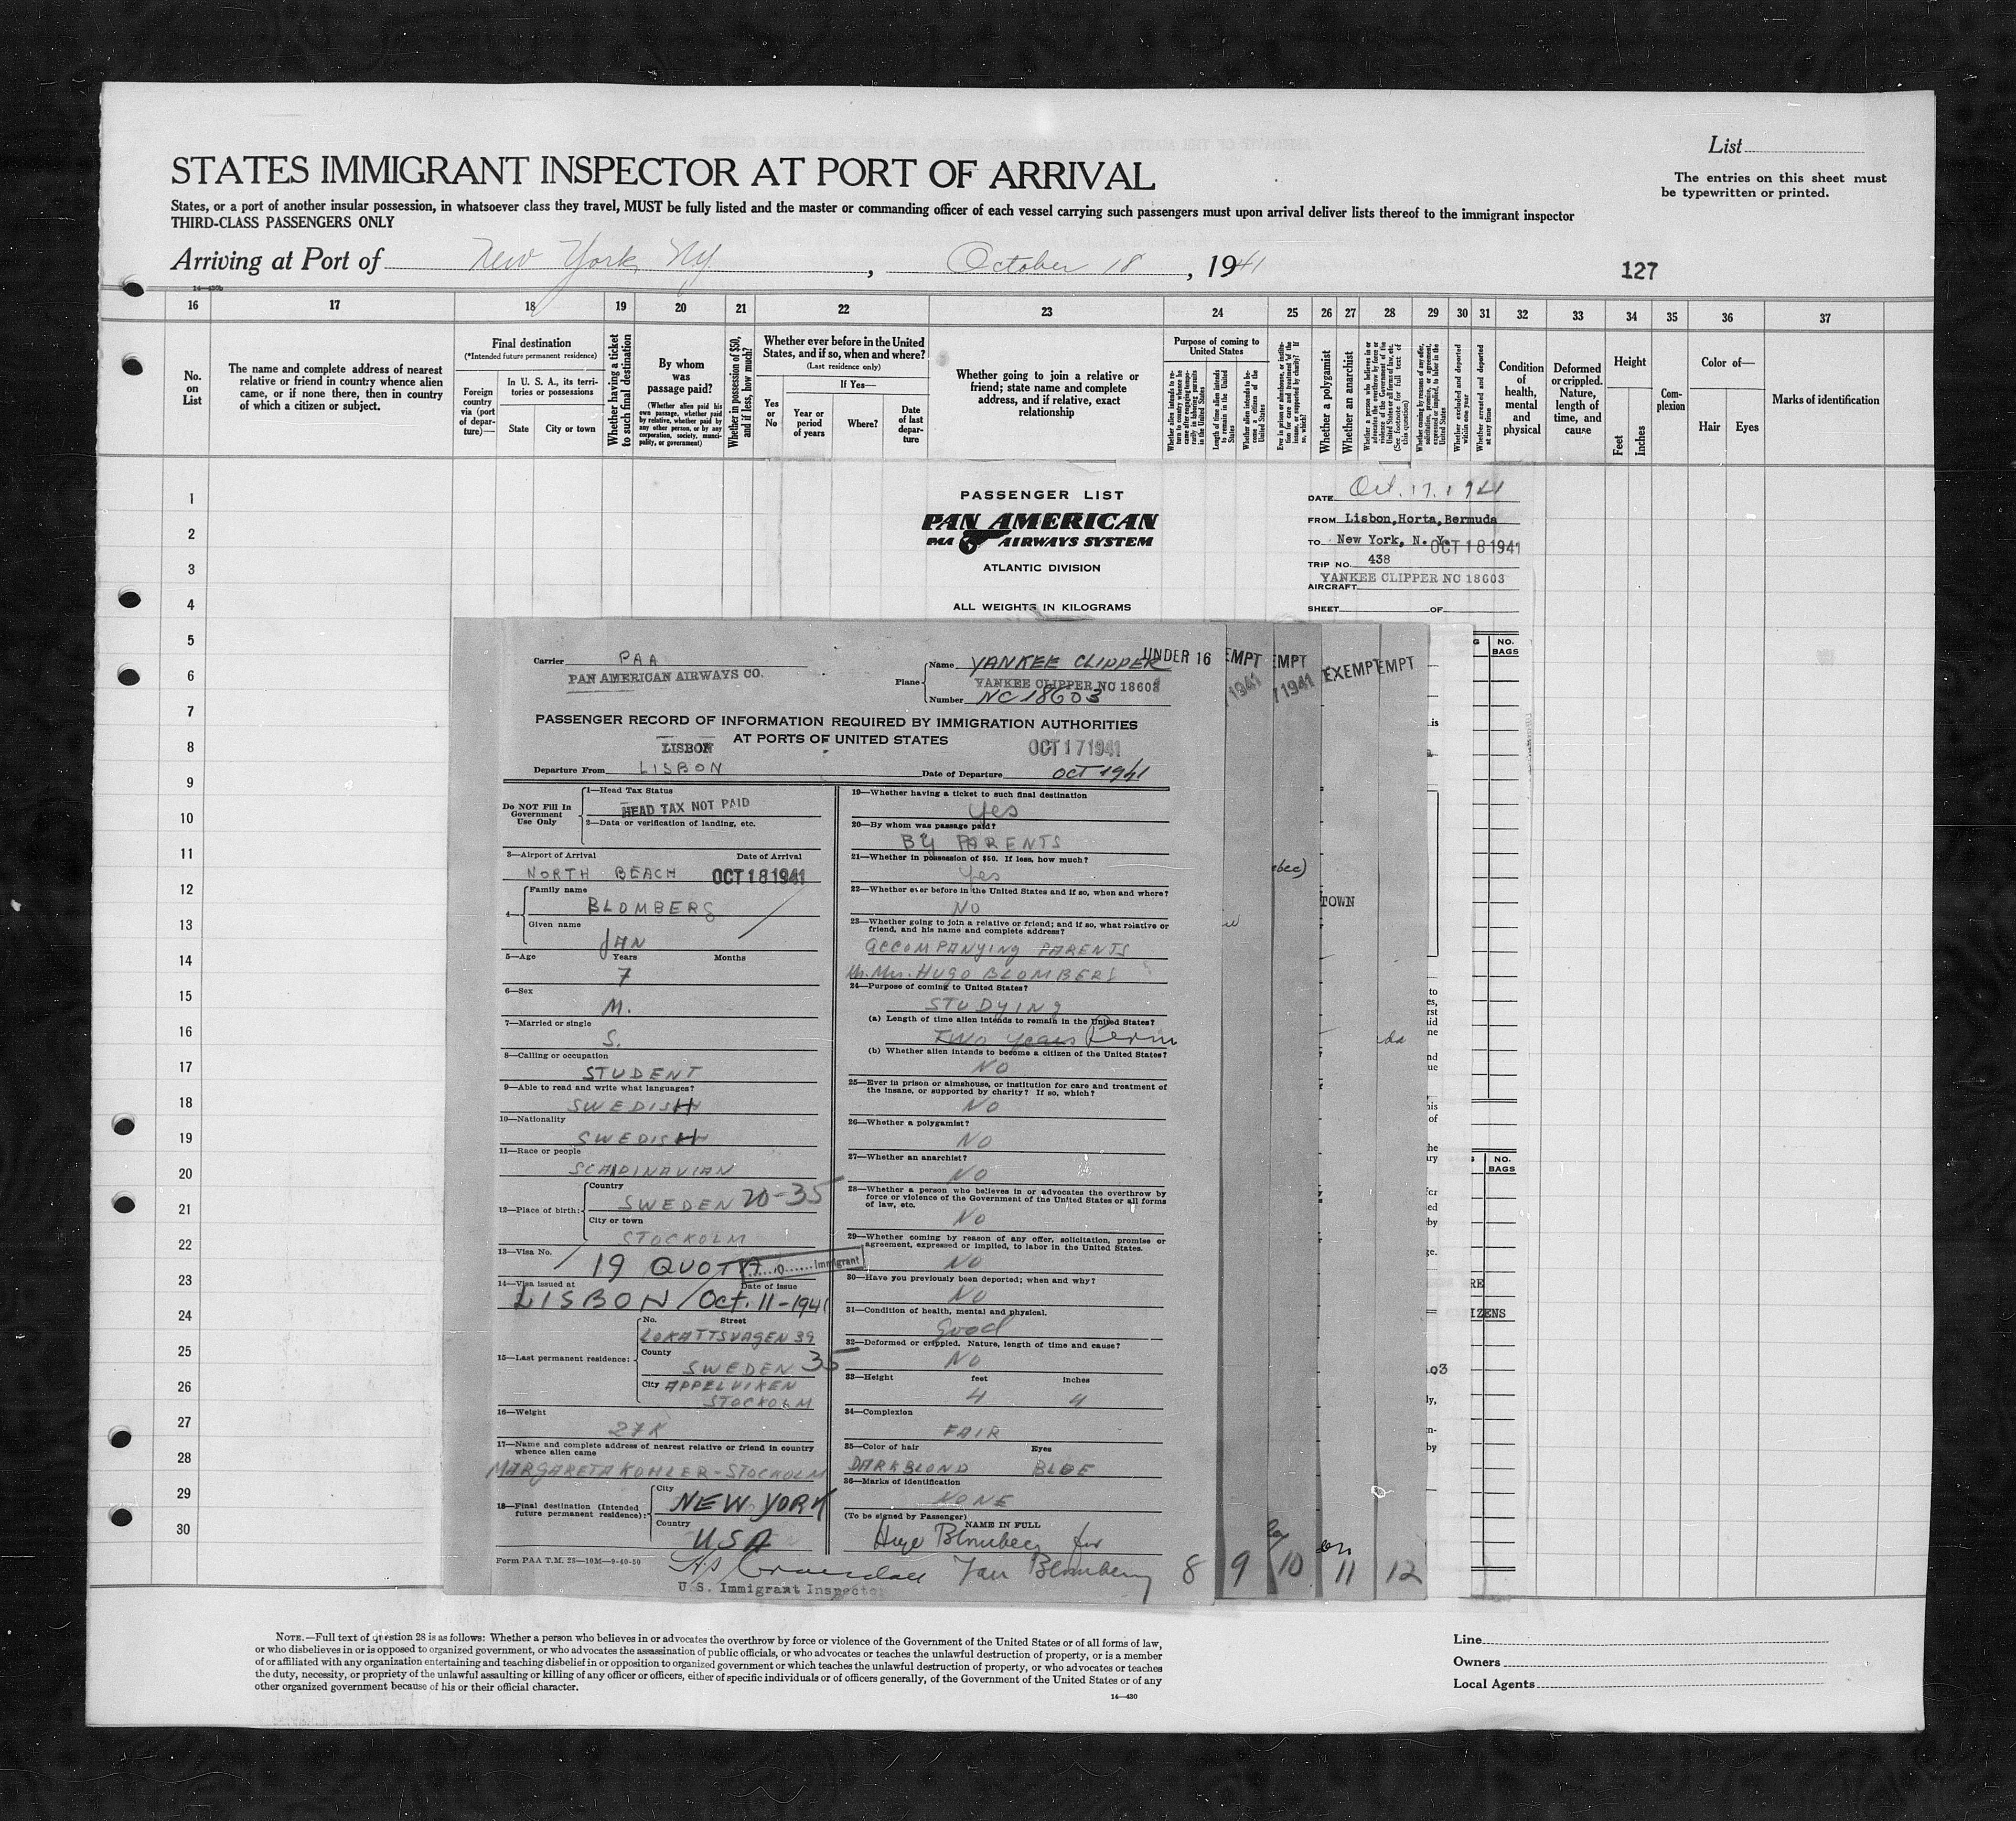 List
STATES IMMIGRANT INSPECTOR AT PORT OF ARRIVAL
The entries on this sheet must
be typewritten or printed.
States, or a port of another insular possession, in whatsoever class they travel, MUST be fully listed and the master or commanding officer of each vessel carrying such passengers must upon arrival deliver lists thereof to the immigrant inspector
THIRD-CLASS PASSENGERS ONLY
Arriving at Port of New York, Ny. , October 18 , 1941
127
14—430b
16 17 18 19 20 21 22 23 24 25 26 27 28 29 30 31 32 33 34 35 36 37
No. on List
The name and complete address of nearest
relative or friend in country whence alien
came, or if none there, then in country
of which a citizen or subject.
Final destination
(*Intended future permanent residence)
Foreign country via (port of depar-ture)—
In U. S. A., its terri-tories or possessions
State
City or town
Whether having a ticket to such final destination
By whom was passage paid?
(Whether alien paid his own passage, whether paid by relative, whether paid by any other person, or by any corporation, society, munici-pality, or government)
Whether in possession of $50, and if less, how much?
Whether ever before in the United
States, and if so, when and where?
(Last residence only)
If Yes—
Yes or No
Year or period of years
Where?
Date of last depar-ture
Whether going to join a relative or
friend; state name and complete
address, and if relative, exact
relationship
Purpose of coming to United States
Length of time alien intends to remain in the United States
Whether alien intends to be-come a citizen of the United States
Whether a polygamist
Whether an anarchist
Whether excluded and deported within one year
Whether arrested and deported at any time
Condition of health, mental and physical
Deformed or crippled. Nature, length of time, and cause
Height
Feet
Inches
Com-plexion
Color of—
Hair
Eyes
Marks of identification
1
2
3
4
5
6
7
8
9
10
11
12
13
14
15
16
17
18
19
20
21
22
23
24
25
26
27
28
29
30
PASSENGER LIST
PAN AMERICAN
PAA AIRWAYS SYSTEM
ATLANTIC DIVISION
ALL WEIGHTS IN KILOGRAMS
DATE Oct. 17. 1941
FROM Lisbon, Horta, Bermuda
TO New York, N. Y. OCT 18 1941
TRIP NO. 438
AIRCRAFT YANKEE CLIPPER NC 18603
SHEET OF
NO. BAGS
Carrier PAA
PAN AMERICAN AIRWAYS CO.
Plane
Name YANKEE CLIPPER
UNDER 16
YANKEE CLIPPER NC 18603
Number NC 18603
EMPT
1941
EMPT
1941
EXEMPT
EMPT
PASSENGER RECORD OF INFORMATION REQUIRED BY IMMIGRATION AUTHORITIES
AT PORTS OF UNITED STATES
LISBON
OCT 17 1941
Departure From LISBON
Date of Departure OCT 1941
Do NOT Fill In
Government
Use Only
1—Head Tax Status
HEAD TAX NOT PAID
2—Data or verification of landing, etc.
3—Airport of Arrival Date of Arrival
NORTH BEACH OCT 18 1941
4—
Family name
BLOMBERG
Given name
JAN
5—Age Years Months
7
6—Sex
M.
7—Married or single
S.
8—Calling or occupation
STUDENT
9—Able to read and write what languages?
SWEDISH
10—Nationality
SWEDISH
11—Race or people
SCADINAVIAN
12—Place of birth:
Country
SWEDEN 20-35
City or town
STOCKOLM
13—Visa No.
19 QUOTA
Immigrant
14—Visa issued at Date of issue
LISBON / Oct. 11-1941
15—Last permanent residence:
No. Street
LOKATTSVAGEN 39
County
SWEDEN 35
City APPELVIKEN
STOCKOLM
16—Weight
27K
17—Name and complete address of nearest relative or friend in country
whence alien came
MARGARETA KOHLER-STOCKOLM
18—Final destination (Intended
future permanent residence):
City
NEW YORK
Country
USA
Form PAA T.M. 28—10M—9-40-50
U.S. Immigrant Inspector
19—Whether having a ticket to such final destination
Yes
20—By whom was passage paid?
BY PARENTS
21—Whether in possession of $50. If less, how much?
Yes
22—Whether ever before in the United States and if so, when and where?
NO
23—Whether going to join a relative or friend; and if so, what relative or
friend, and his name and complete address?
ACCOMPANYING PARENTS
Mr. Mrs. HUGO BLOMBERG
24—Purpose of coming to United States?
STUDYING
(a) Length of time alien intends to remain in the United States?
Two years Perm
(b) Whether alien intends to become a citizen of the United States?
NO
25—Ever in prison or almshouse, or institution for care and treatment of
the insane, or supported by charity? If so, which?
NO
26—Whether a polygamist?
NO
27—Whether an anarchist?
NO
28—Whether a person who believes in or advocates the overthrow by
force or violence of the Government of the United States or all forms
of law, etc.
NO
29—Whether coming by reason of any offer, solicitation, promise or
agreement, expressed or implied, to labor in the United States.
NO
30—Have you previously been deported; when and why?
NO
31—Condition of health, mental and physical.
Good
32—Deformed or crippled. Nature, length of time and cause?
NO
33—Height feet inches
4 4
34—Complexion
FAIR
35—Color of hair Eyes
DARKBLOND BLUE
36—Marks of identification
NONE
(To be signed by Passenger)
NAME IN FULL
Hugo Blomberg for
Jan Blomberg
8 9 10 11 12
TOWN
NOTE.—Full text of question 28 is as follows: Whether a person who believes in or advocates the overthrow by force or violence of the Government of the United States or of all forms of law,
or who disbelieves in or is opposed to organized government, or who advocates the assassination of public officials, or who advocates or teaches the unlawful destruction of property, or is a member
of or affiliated with any organization entertaining and teaching disbelief in or opposition to organized government or which teaches the unlawful destruction of property, or who advocates or teaches
the duty, necessity, or propriety of the unlawful assaulting or killing of any officer or officers, either of specific individuals or of officers generally, of the Government of the United States or of any
other organized government because of his or their official character.
14—430
Line
Owners
Local Agents